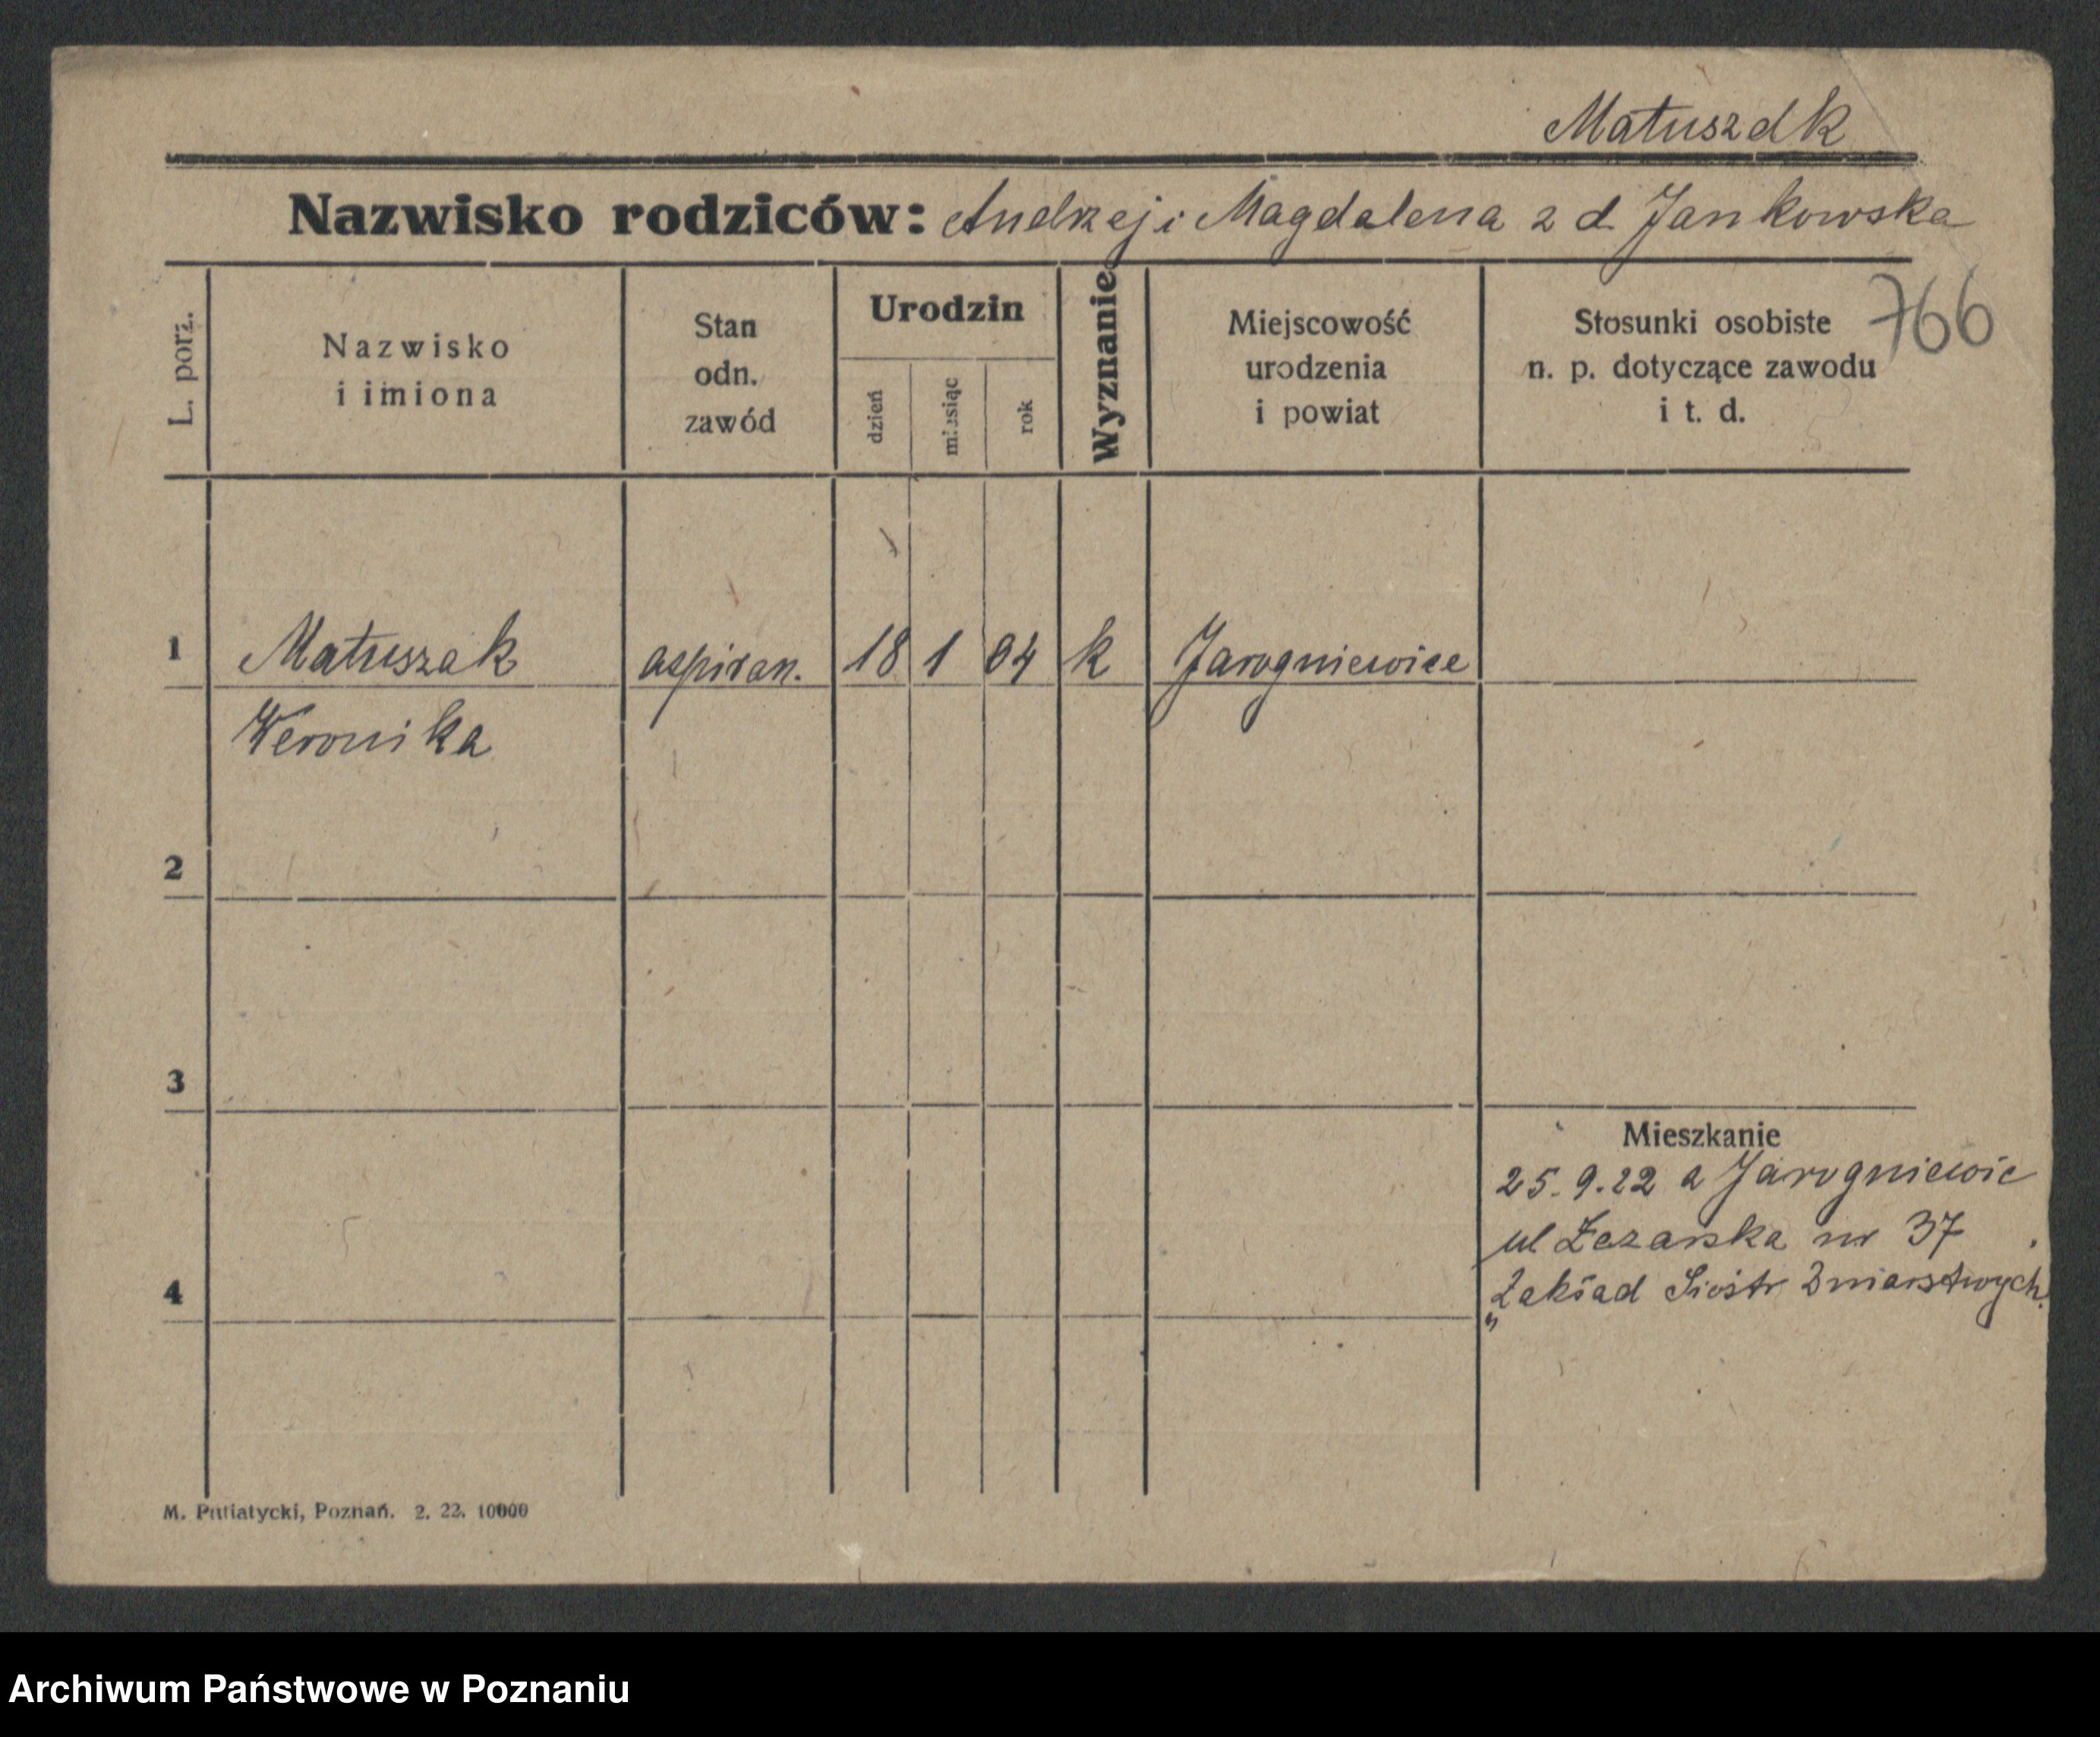 Matuszak
Nazwisko rodziców: Andrzej i Magdalena z d. Jankowska
766
L. porz.
Nazwisko
i imiona
Stan
odn.
zawód
Urodzin
dzień
miesiąc
rok
Wyznanie
Miejscowość
urodzenia
i powiat
Stosunki osobiste
n. p. dotyczące zawodu
i t. d.
1 Matuszak aspiran. 18 1 04 k Jarogniewice
Weronika
2
3
Mieszkanie
25.9.22 a Jarogniewic
ul nr 37
4
Zakład Siostr
M. Putiatycki, Poznań. 2. 22. 10000
Archiwum Państwowe w Poznaniu